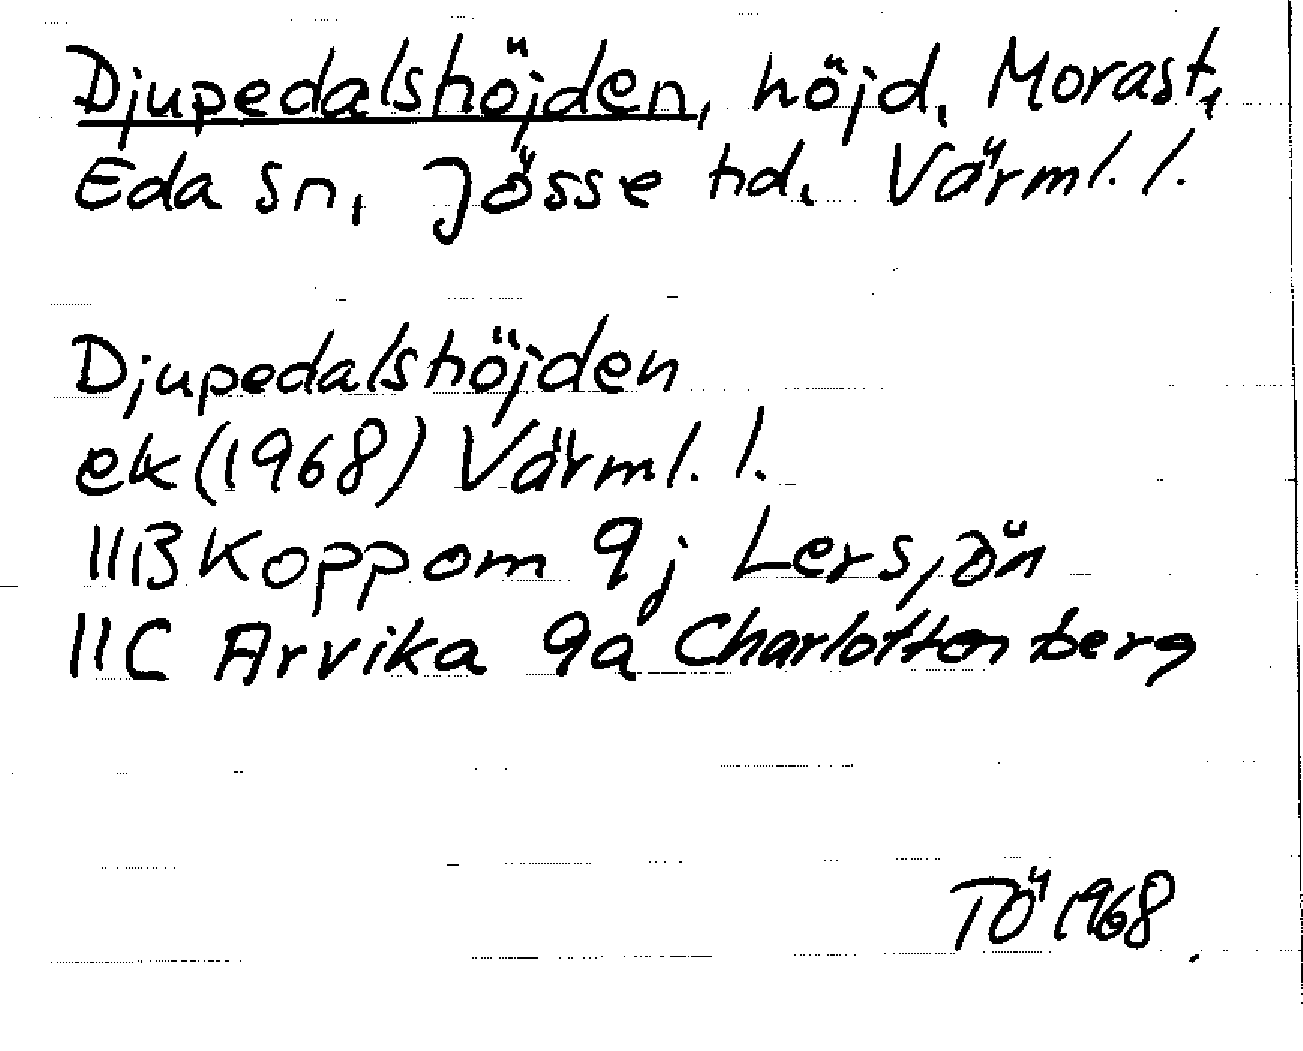 Djupedalshöjden, höjd, Morast,
Eda sn, Jösse hd, Värml. l.
Djupedalshöjden
ek (1968) Värml. l.
11B Koppom 9j Lersjön
11C Arvika 9a Charlottenberg
TÖ 1968